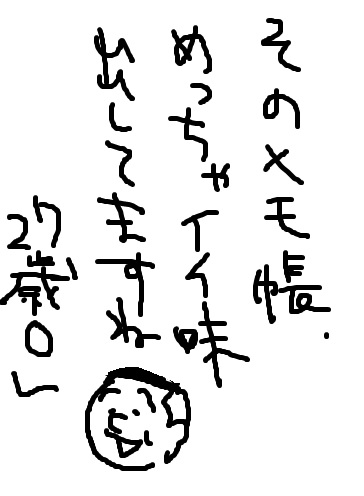 そのメモ帳、
めっちゃイイ味
出してますね
27歳OL